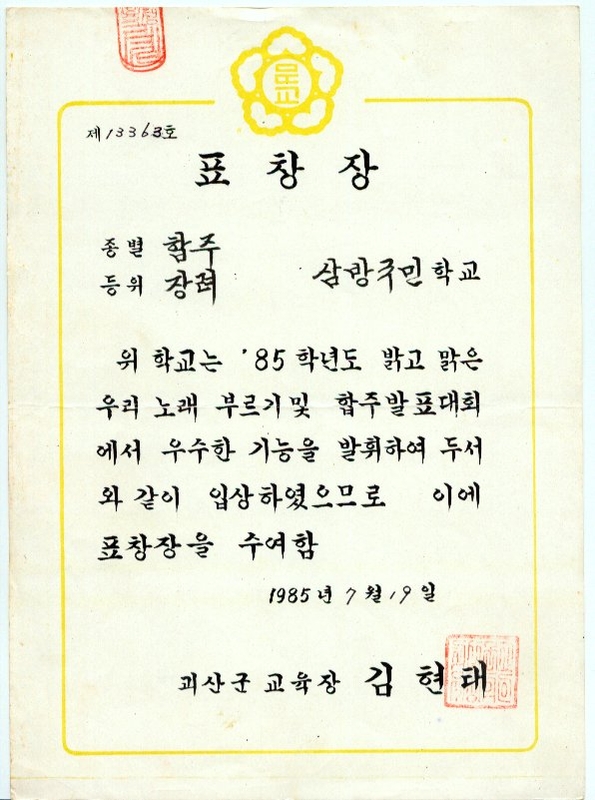 문교
제13363호
표창장
종별 합주
등위 장려
삼방국민학교
위 학교는 '85학년도 밝고 맑은
우리 노래 부르기및 합주발표대회
에서 우수한 기능을 발휘하여 두서
와 같이 입상하였으므로 이에
표창장을 수여함
1985년 7월 19일
괴산군 교육장 김현태